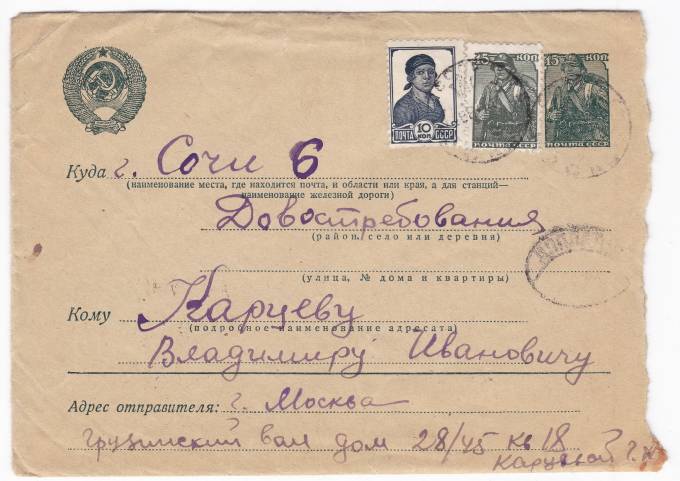 ПОЧТА 10 КОП СССР
15 КОП
ПОЧТА СССР
15 КОП
ПОЧТА СССР
Куда г. Сочи 6
(наименование места, где находится почта, и области или края, а для станций—
наименование железной дороги)
Довостребования
(район, село или деревня)
(улица, № дома и квартиры)
Кому Карцеву
(подробное наименование адресата)
Владимиру Ивановичу
Адрес отправителя: г. Москва
Грузинский вал дом 28/45 кв 18
Карцевой Г.